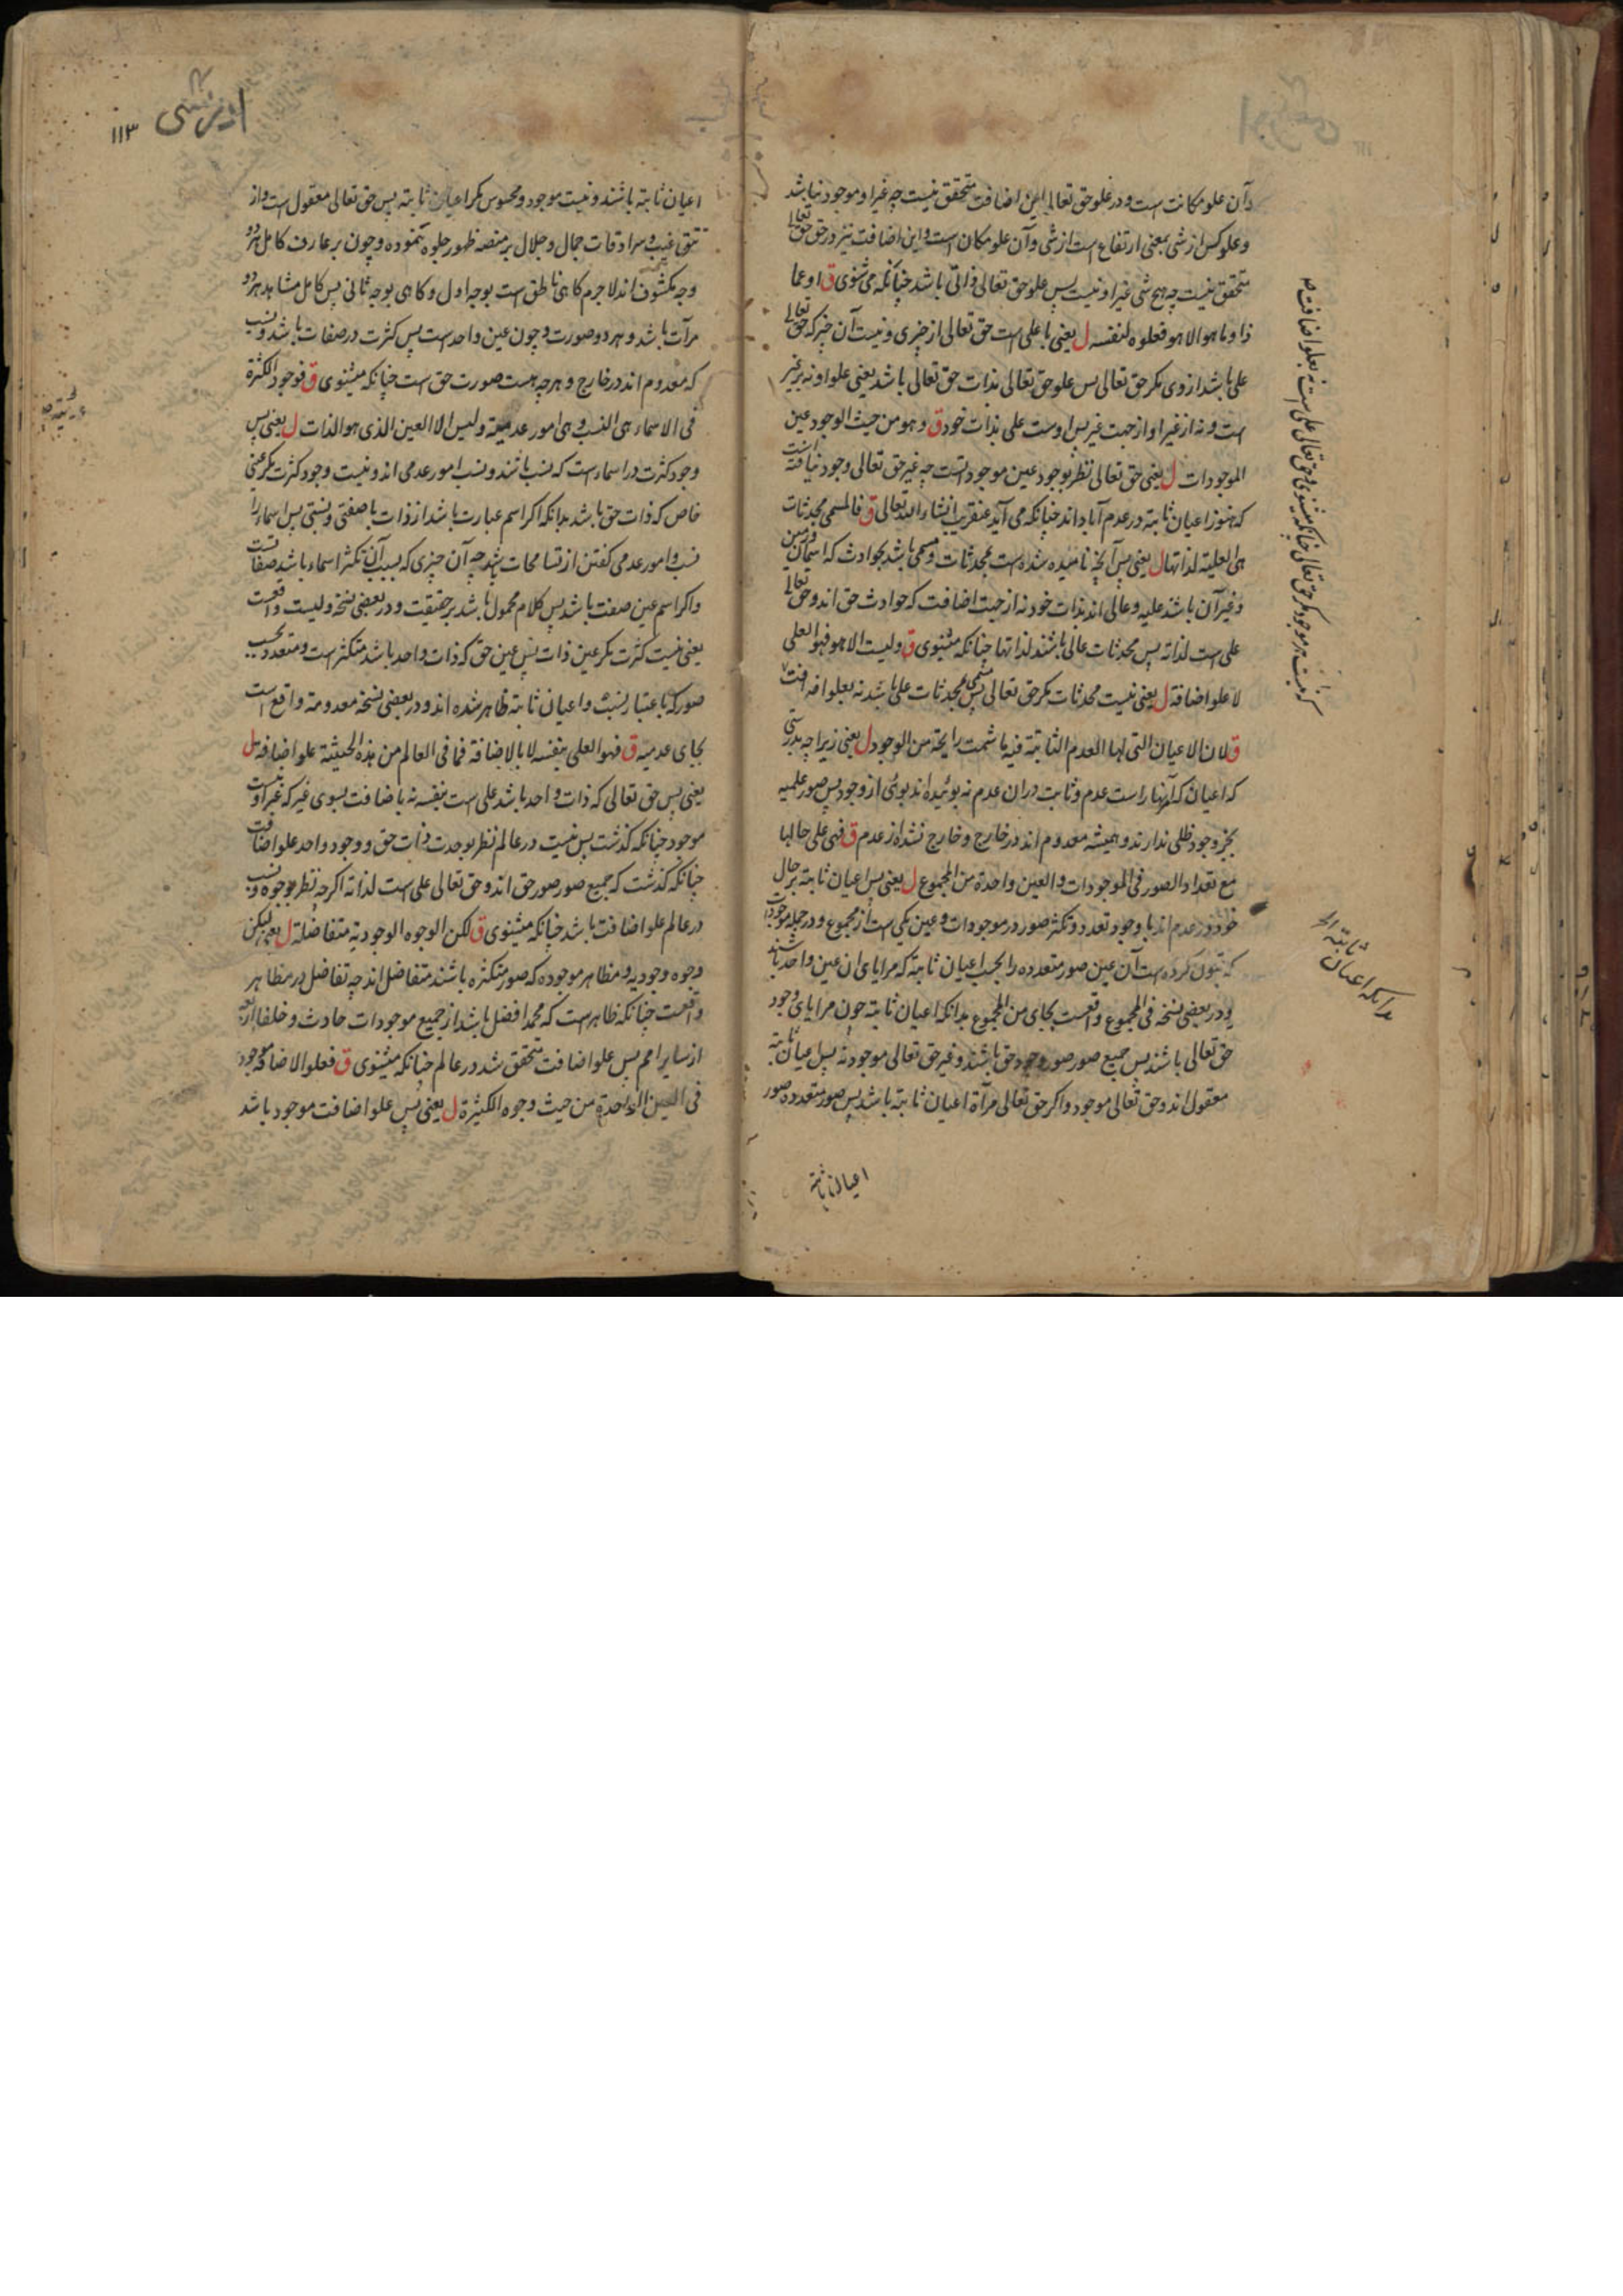 وآن علو مکانت است و در علو حق تعالی این اضافت متحقق نیست چه غیر او موجود نباشد
وعلو کس از شی بمعنی ارتفاع است از شی وآن علو مکان است واین اضافت نیز در حق حق تعالی
متحقق نیست چه هیچ شی غیر او نیست پس علو حق تعالی ذاتی باشد چنانکه می شنوی ق او عما
ذا وما هو الا هو فعلوه لنفسه ل یعنی یا علی است حق تعالی از چیزی ونیست آن چیز که حق تعالی
علی باشد از وی مکر حق تعالی پس علو حق تعالی بذات حق تعالی باشد یعنی علو او نه بر غیر
است ونه از غیر او از جهت غیر پس اوست علی بذات خود ق وهو من حیث الوجود عین
الموجودات ل یعنی حق تعالی نظر بوجود عین موجود است چه غیر حق تعالی وجود نیافته است
که هنوز اعیان ثابته در عدم آباد اند چنانکه می آید عنقریب انشاء الله تعالی ق فالمسمی محدثات
هی العلیة لذاتها ل یعنی پس آنچه نامیده شده است بمحدثات ومسمی باشد بحوادث که آسمان وزمین
وغیر آن باشند علیه وعالی اند بذات خود نه از جهت اضافت که حوادث حق اند وحق تعالی
علی است لذاته پس محدثات عالی باشند لذاتها چنانکه میشنوی ق ولیست الا هو فهو العلی
لا علو اضافة ل یعنی نیست محدثات مکر حق تعالی پس مسمی بمحدثات علی باشد نه بعلو اضافت
ق لان الاعیان التی لها العدم الثابتة فیه ما شمت رایحة من الوجود ل یعنی زیرا چه بدرستی
که اعیان که آنها راست عدم وثابت در ان عدم نه بوئیده اند بوئی از وجود پس صور علمیه
بجز وجود ظلی ندارند وهمیشه معدوم اند در خارج وخارج نشد از عدم ق فهی علی حالها
مع تعداد الصور فی الموجودات والعین واحدة من المجموع ل یعنی پس اعیان ثابته بر حال
خود در عدم اند با وجود تعدد وتکثر صور در موجودات وعین یکی است از مجموع ودر جمله موجودات
که تبون کرده است آن عین صور متعدده را بحسب اعیان ثابته که مرایای ان عین واحد باشند
ودر بعضی نسخه فی المجموع واقعست بجای من المجموع بدانکه اعیان ثابته چون مرایای وجود
حق تعالی باشند پس جمیع صور صور وجود حق باشند وغیر حق تعالی موجود نه پس اعیان ثابته
معقول اند وحق تعالی موجود واکر حق تعالی مرآة اعیان ثابته باشد پس صور متعدده صور
اعیان ثابته
که نیست هر موجود مکر حق تعالی چنانکه میشنوی وحق تعالی علی است نه بعلو اضافت
بدانکه اعیان ثابته الخ
۱۱۳
اعیان ثابته باشند ونیست موجود ومحسوس مکر اعیان ثابته پس حق تعالی معقول است واز
تتق غیب وسرادقات جمال وجلال بر منصه ظهور جلوه ننموده وچون بر عارف کامل هر دو
وجه مکشوف اند لاجرم کاهی ناطق است بوجه اول وکاهی بوجه ثانی پس کامل مشاهد هر دو
مرآت باشد وهر دو صورت وچون عین واحد است پس کثرت در صفات باشد ونسب
که معدوم اند در خارج وهر چه هست صورت حق است چنانکه میشنوی ق فوجود الکثرة
فی الاسماء هی النسب وهی امور عدمیة ولیس الا العین الذی هو الذات ل یعنی پس
وجود کثرت در اسماء است که نسب باشند ونسب امور عدمی اند ونیست وجود کثرت مکر عینی
خاص که ذات حق باشد بدانکه اکر اسم عبارت باشد از ذات با صفتی ونسبتی پس اسماء را
نسب وامور عدمی کفتن از تسامحات باشد چه آن چیزی که بسبب آن تکثر اسماء باشد صفاتست
واکر اسم عین صفت باشد پس کلام محمول باشد بر حقیقت ودر بعضی نسخه ولیست واقعست
یعنی نیست کثرت مکر عین ذات پس عین حق که ذات واحد باشد متکثر است ومتعدد بحسب
صور که باعتبار نسب واعیان ثابته ظاهر شده اند ودر بعضی نسخه معدومة واقع است
بجای عدمیه ق فهو العلی بنفسه لا بالاضافة فما فی العالم من هذه الحیثیة علو اضافه ل
یعنی پس حق تعالی که ذات واحد باشد علی است بنفسه نه باضافت بسوی غیر که غیر او نیست
موجود چنانکه کذشت پس نیست در عالم نظر بوحدت ذات حق ووجود واحد علو اضافت
چنانکه کذشت که جمیع صور صور حق اند وحق تعالی علی است لذاته اکرچه نظر بوجوه ونسب
در عالم علو اضافت باشد چنانکه میشنوی ق لکن الوجوه الوجودیه متفاضلة ل یعنی لیکن
وجوه وجودیه ومظاهر موجوده که صور متکثره باشند متفاضل اند چه تفاضل در مظاهر
واقعست چنانکه ظاهر است که محمد افضل باشد از جمیع موجودات حادث وخلفا اربعه
از سایر امم پس علو اضافت متحقق شد در عالم چنانکه میشنوی ق فعلو الاضافة موجود
فی العین الواحدة من حیث وجوه الکثیرة ل یعنی پس علو اضافت موجود باشد